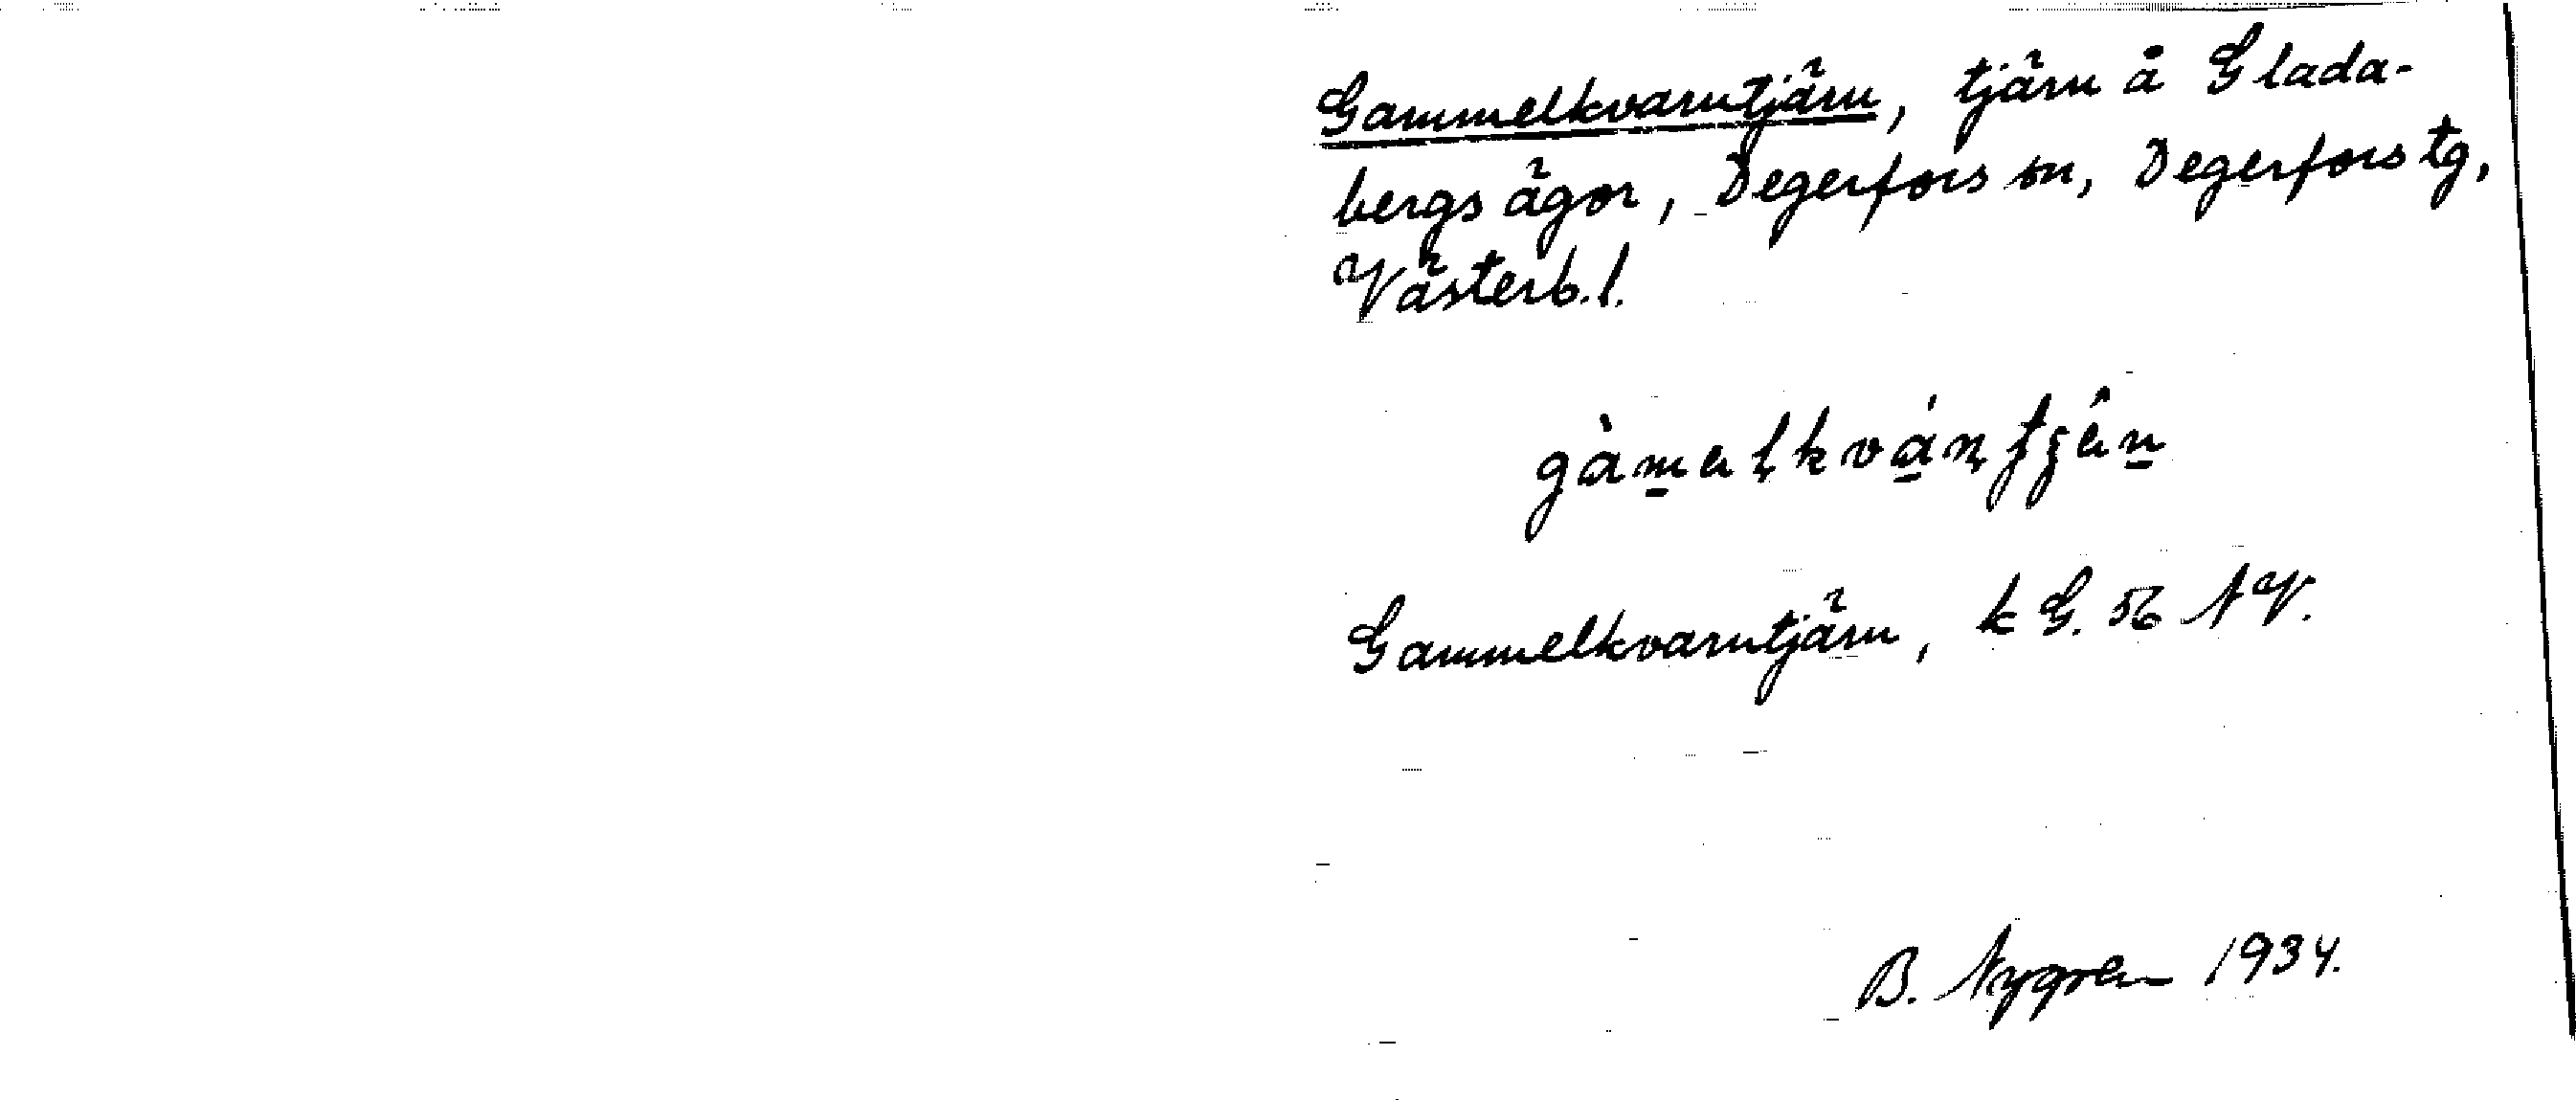 Gammelkvarntjärn, tjärn å Glada-
bergs ägor, Degerfors sn, Degerfors tg,
Västerb.l.
Gammelkvarntjärn, k G. 56 NV.
B. Nygren 1934.